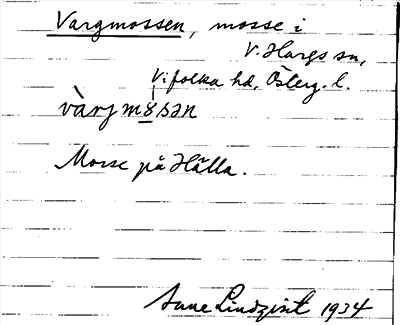 Vargmossen, mosse i
V. Hargs sn,
Vifolka hd, Österg. l.
vàrjmɷ̀sən
Mosse på Hålla.
Arne Lindqvist 1934